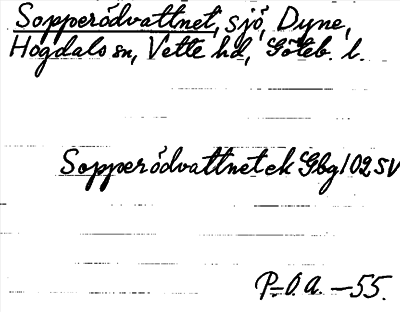 Sopperödvattnet, sjö, Dyne,
Hogdals sn, Vette hd, Göteb. l.
Sopperödvattnet ek Gbg 102 SV
P.O.A. -55.